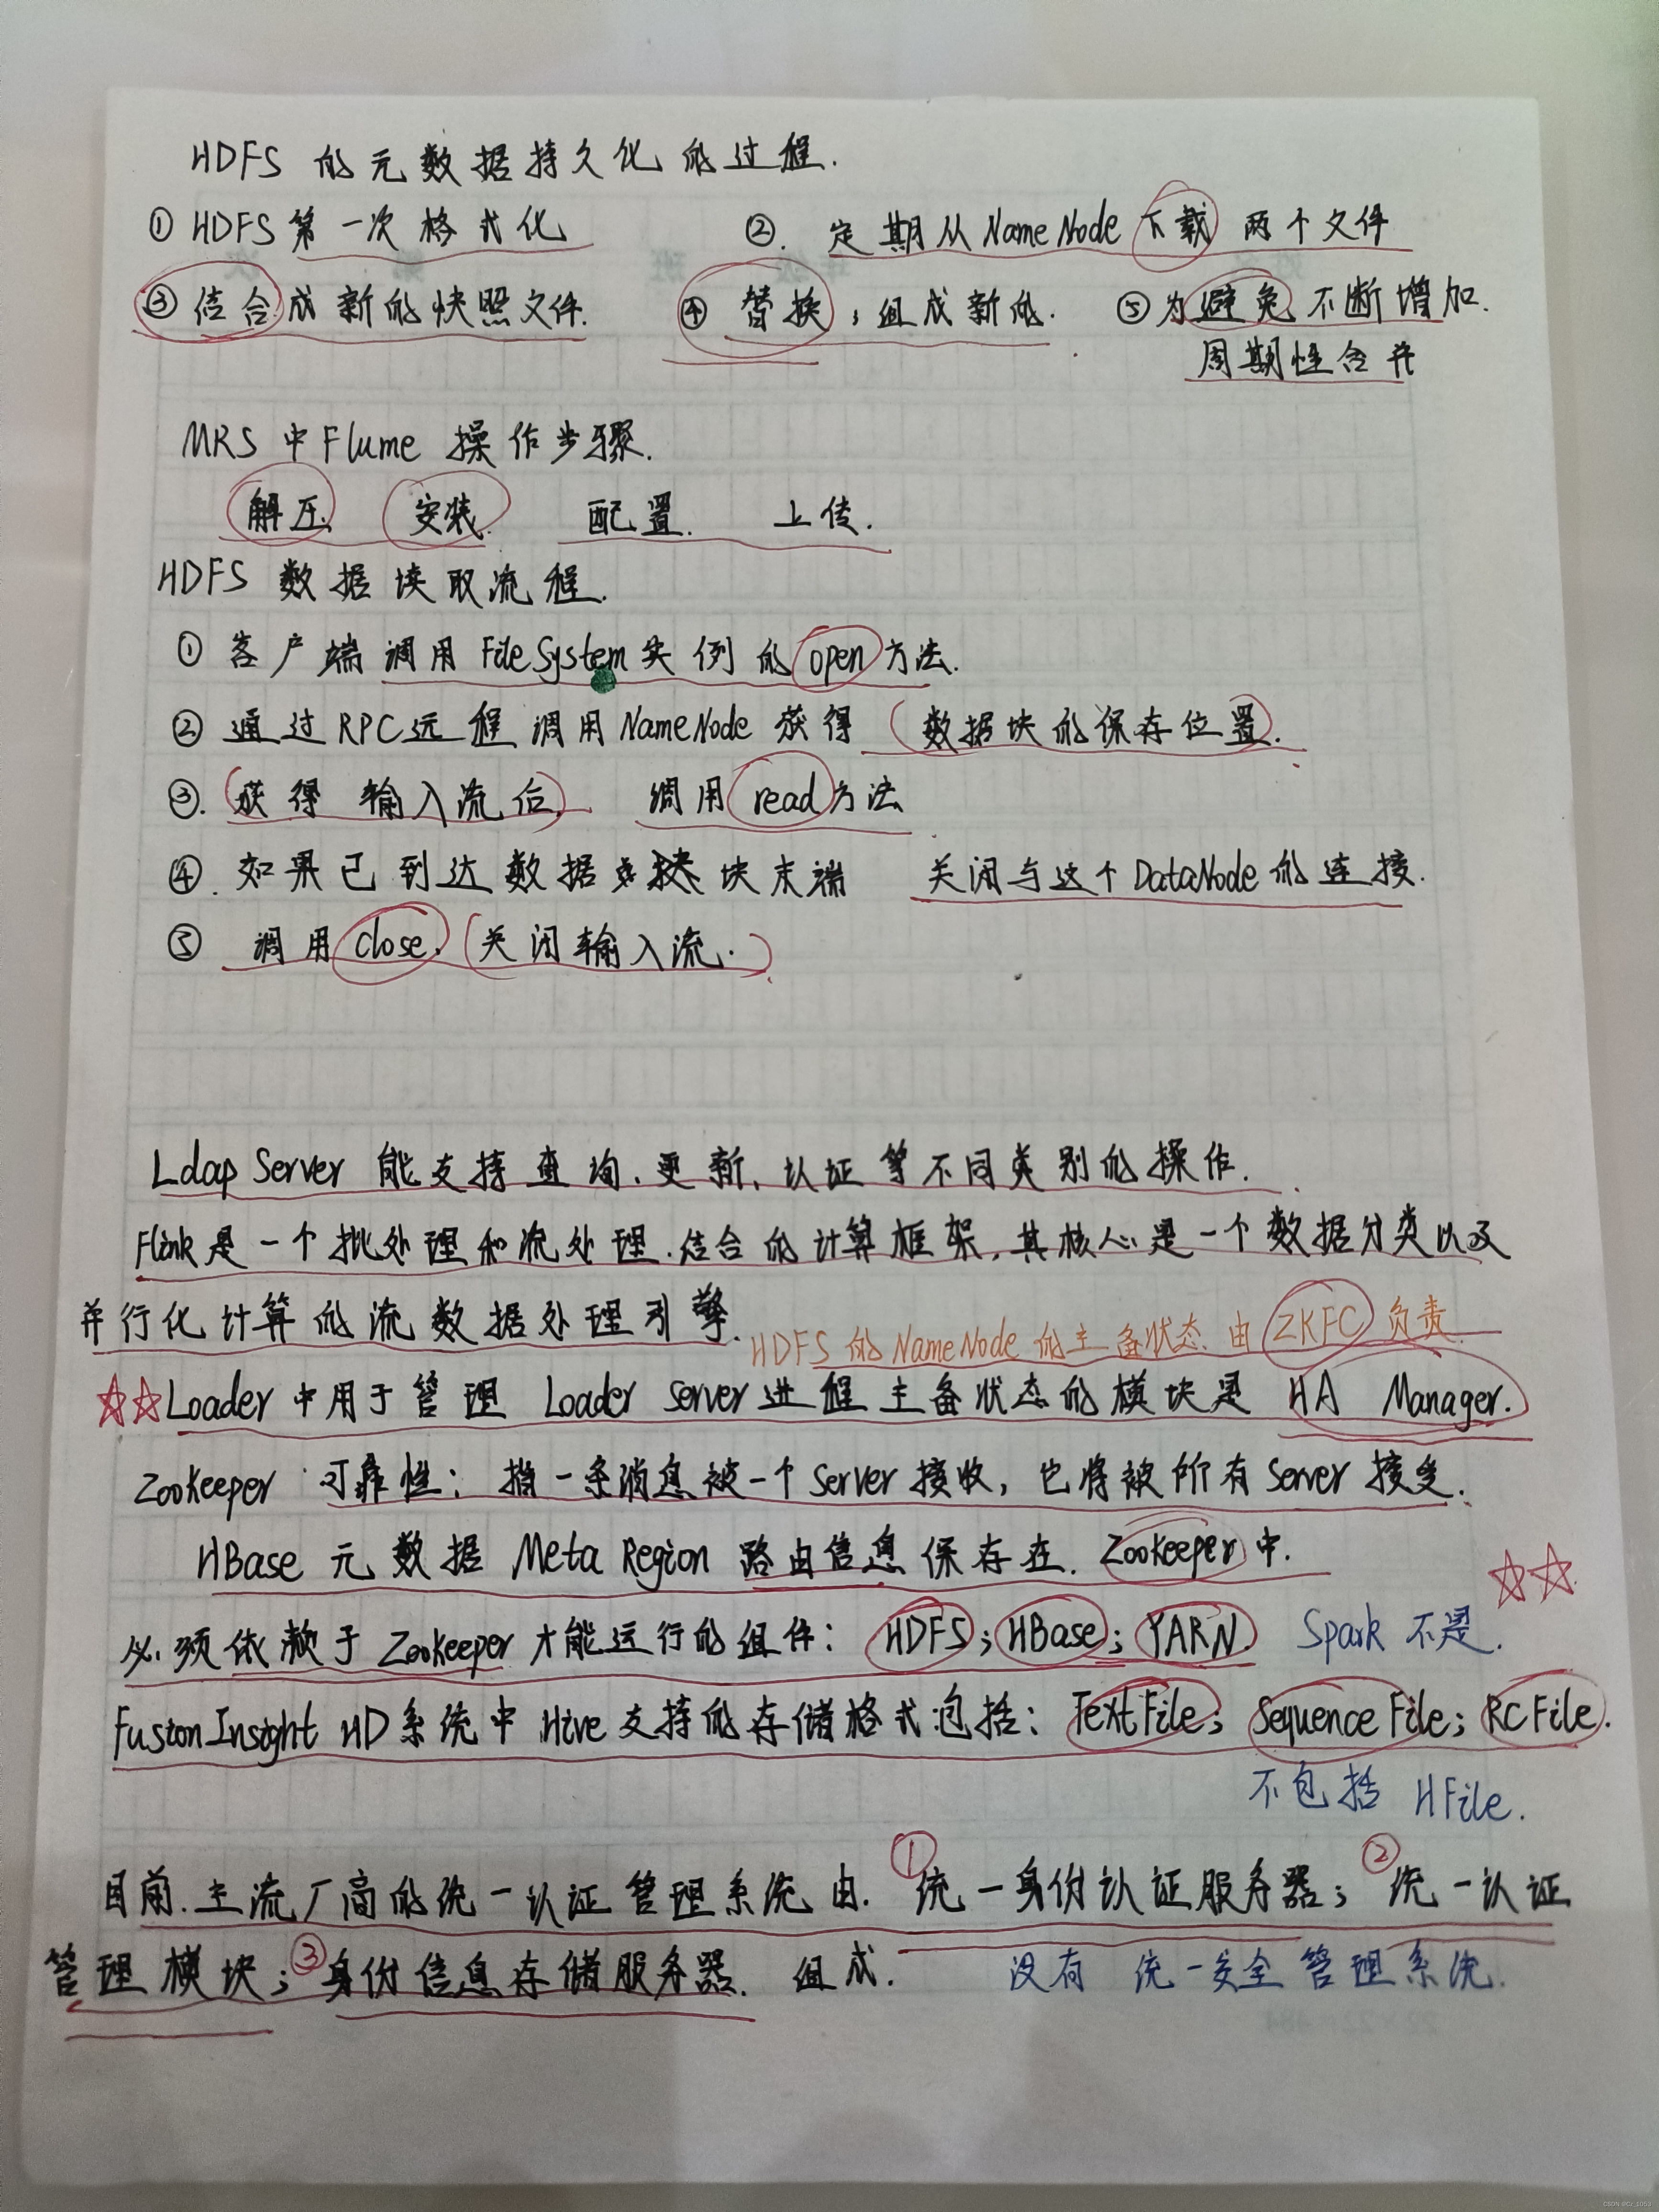 HDFS 的元数据持久化的过程.
① HDFS 第一次格式化 ②. 定期从NameNode下载 两个文件
③结合成新的快照文件. ④替换;组成新的. ⑤为避免不断增加.
周期性合并
MRS中Flume 操作步骤.
解压、安装. 配置. 上传.
HDFS 数据读取流程.
① 客户端调用FileSystem实例的open方法.
② 通过RPC远程调用NameNode 获得 (数据块的保存位置.)
③. (获得 输入流后) 调用read方法
④. 如果已到达数据块末端 关闭与这个DataNode的连接.
⑤ 调用close. (关闭输入流.)
Ldap Server 能支持查询、更新、认证等不同类别的操作.
Flink是一个批处理和流处理.结合的计算框架,其核心是一个数据分类以及
并行化计算的流数据处理引擎.
HDFS 的NameNode的主备状态.由ZKFC负责.
☆☆Loader中用于管理 Loader Server进程主备状态的模块是 HA Manager.
ZooKeeper 可靠性: 指一条消息被一个Server接收,也将被所有Server接受.
HBase 元数据 Meta Region 路由信息保存在. ZooKeeper中.
☆☆
必须依赖于ZooKeeper才能运行的组件: HDFS;HBase;YARN. Spark 不是.
FusionInsight HD系统中Hive支持的存储格式包括: TextFile; Sequence File; RCFile.
不包括 HFile.
目前.主流厂商的统一认证管理系统由. ①统一身份认证服务器; ②统一认证
管理模块;③身份信息存储服务器. 组成. 没有 统一安全管理系统.